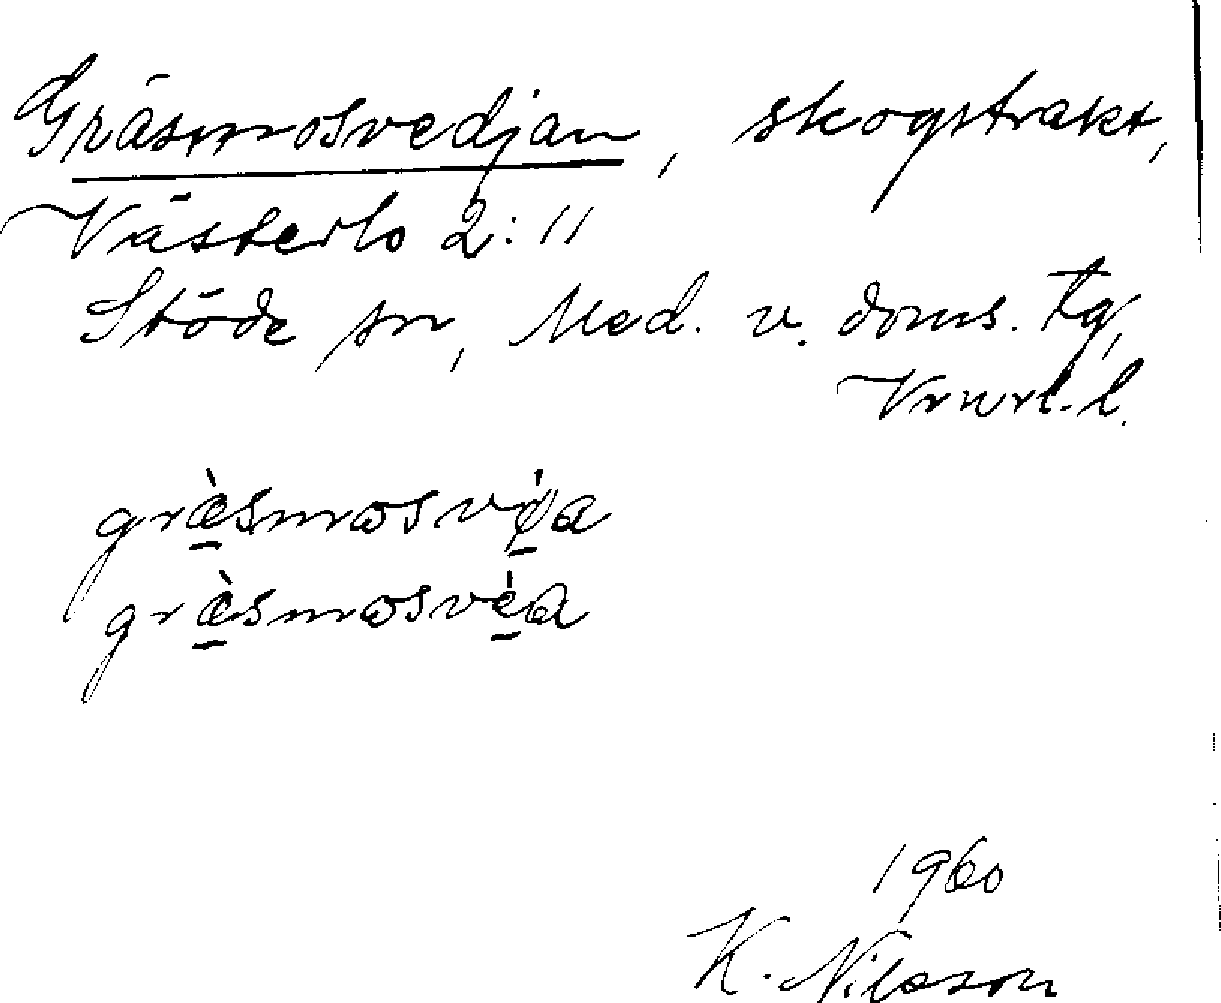 Gräsmosvedjan, skogstrakt,
Västerlo 2:11
Stöde sn, Med. v. doms. tg,
Vrnrl. l.
græ̀smosvéa
græ̀smosvèa
1960
K. Nilsson